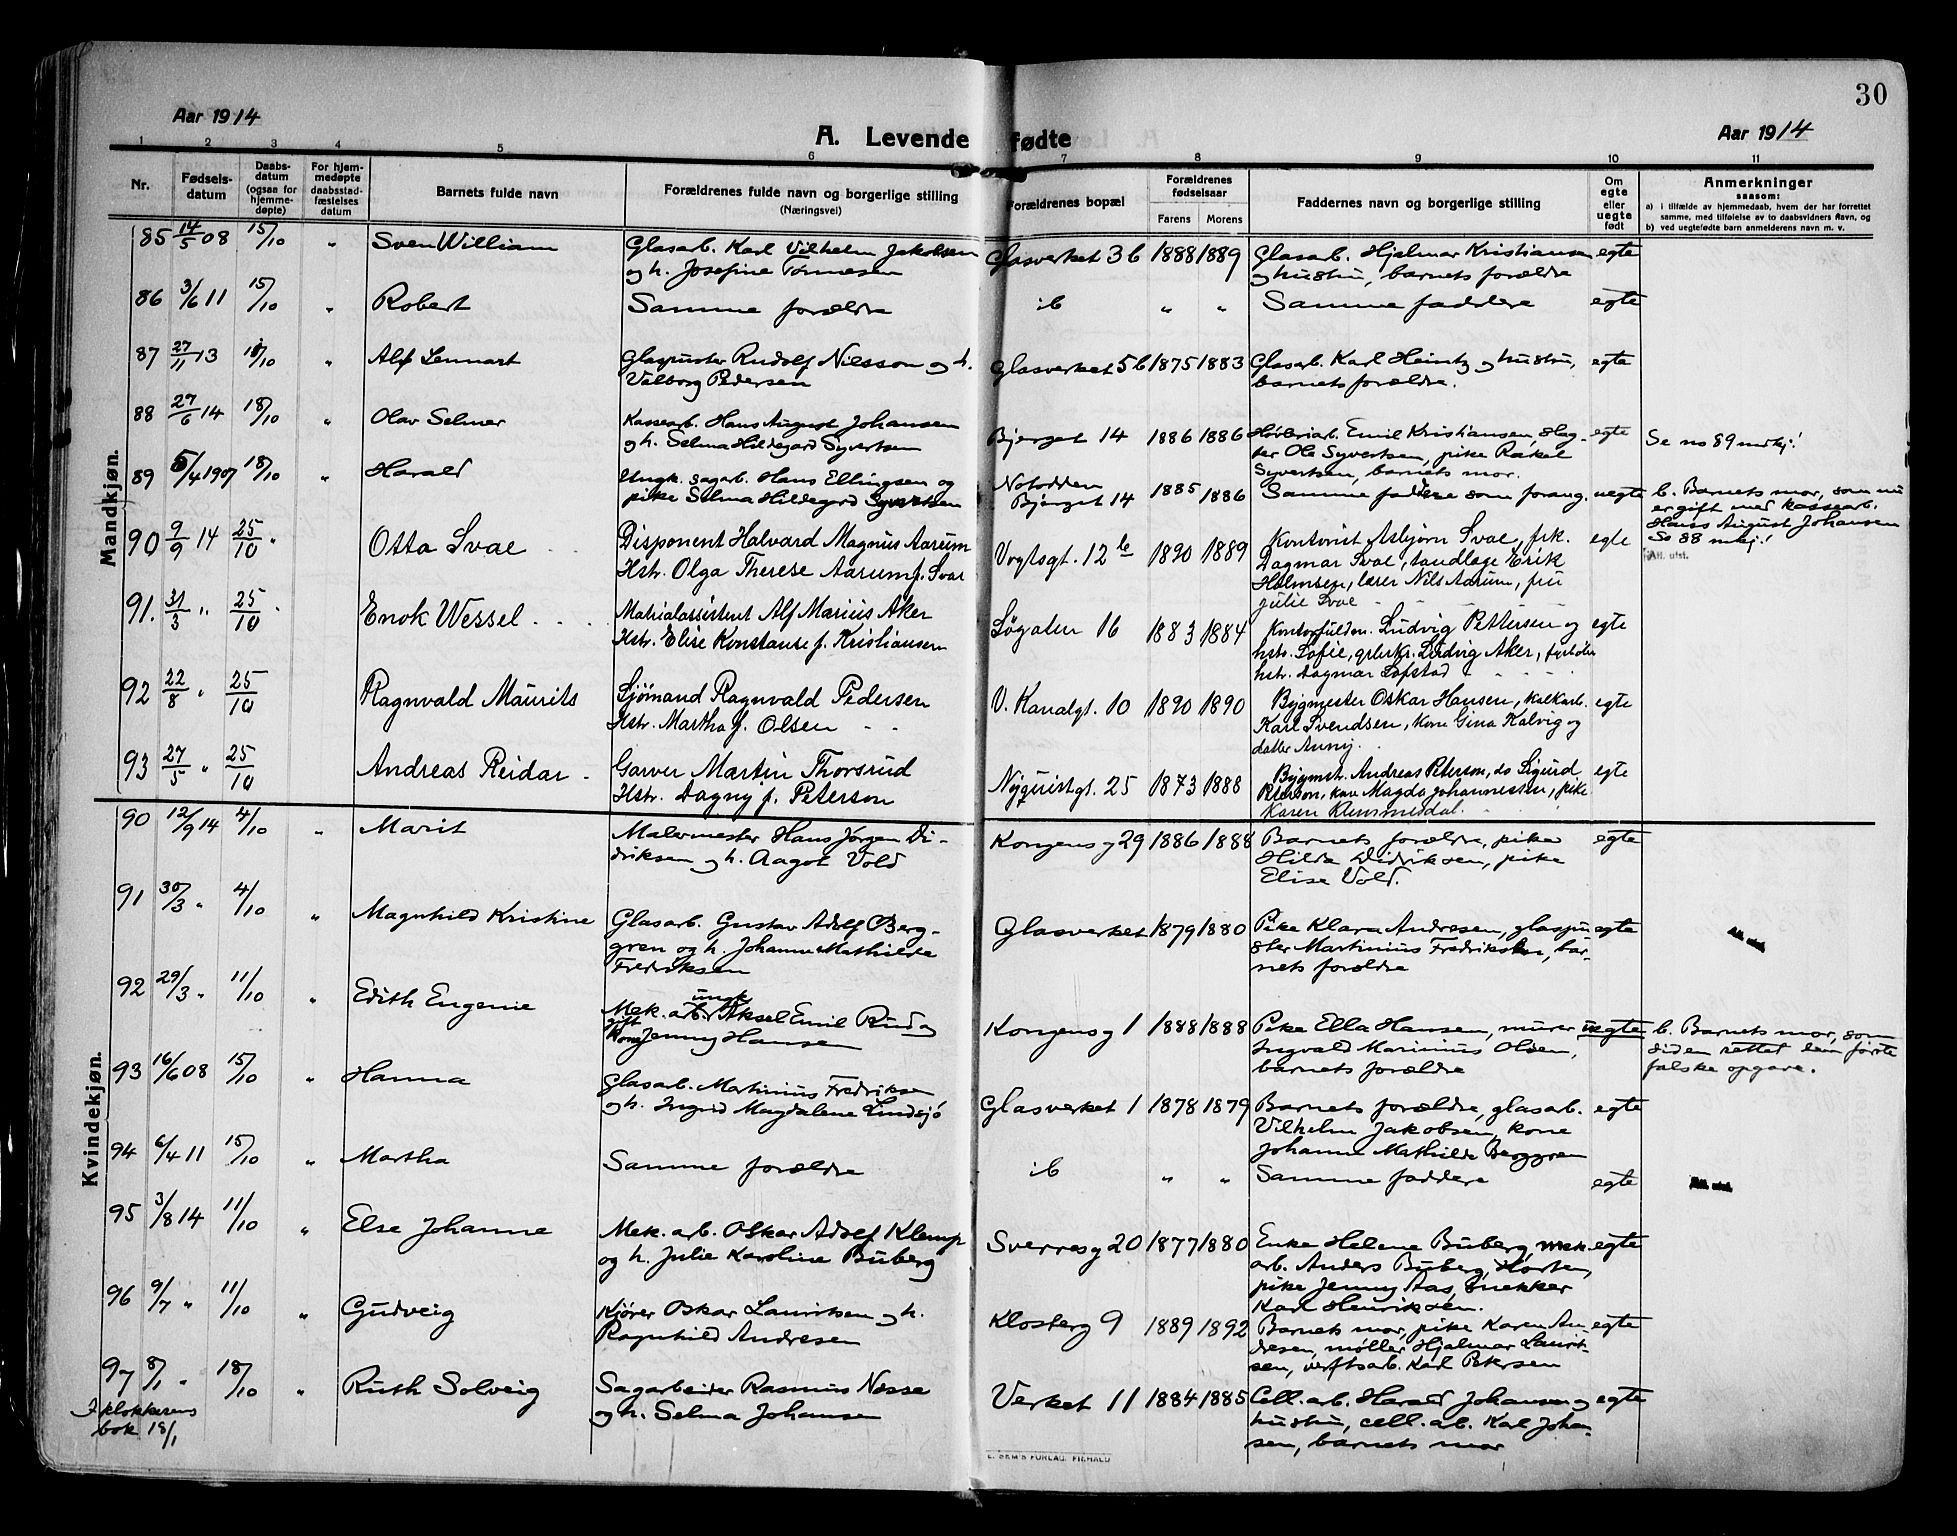 30
Aar 1914
A. Levende fødte
Aar 1914
1 2 3 4 5 6 7 8 9 10 11
Nr.
Fødsels-
datum
Daabs-
datum
(ogsaa for
hjemme-
døpte)
For hjem-
medøpte
daabsstad-
fæstelses
datum
Barnets fulde navn
Forældrenes fulde navn og borgerlige stilling
(Næringsvei)
Forældrenes bopæl
Forældrenes
fødselsaar
Farens Morens
Faddernes navn og borgerlige stilling
Om
egte
eller
uegte
født
Anmerkninger
saasom:
a) i tilfælde av hjemmedaab, hvem der har forrettet
samme, med tilføielse av to daabsvidners navn, og
b) ved uegtefødte barn anmelderens navn m. v.
Mandkjøn.
85 14/5 08 15/10 " Sven William Glasarb. Karl Vilhelm Jakobsen Glasverket 3b 1888 1889 Glasarb. Hjalmar Kristiansen egte
og h. Josefine Tønnesen og hustru, barnets forældre
86 3/6 11 15/10 " Robert Samme forældre ib " " Samme faddere egte
87 27/11 13 18/10 " Alf Lennart Glaspuster Rudolf Nilsson og h. Glasverket 5b 1875 1883 Glasarb. Karl Heintz og hustru, egte
Valborg Pedersen barnets forældre.
88 27/6 14 18/10 " Olav Selmer Kassearb. Hans August Johansen Bjerget 14 1886 1886 Høvleriarb. Emil Kristiansen, Hag- egte Se no 89 mkj!
og h. Selma Hildegard Syvertsen ber Ole Syvertsen, pike Rakel
Syvertsen, barnets mor.
89 5/4 1907 18/10 " Harald Ungk. sagarb. Hans Ellingsen og Notodden 1885 1886 Samme faddere som forang. uegte b. Barnets mor, som nu
pike Selma Hildegard Syvertsen Bjerget 14 er gift med kassearb.
Hans August Johansen
Se 88 mkj!
90 9/9 14 25/10 " Otto Svae Disponent Halvard Magnus Aarum Vogtsgt. 12b 1890 1889 Kontorist Asbjørn Svae, frk. egte Att. utst.
Hstr. Olga Therese Aarum f. Svae Dagmar Svae, tandlæge Erik
Holmsen, lærer Nils Aarum, fru
Julie Svae
91. 31/3 " 25/10 Enok Wessel Matrialassistent Alf Marius Aker Løgaten 16 1883 1884 Kontorfuldm. Ludvig Pettersen og egte
Hstr. Elise Konstanse f. Kristiansen hstr. Sofie, Ludvig Aker,
hstr. Dagmar Lofstad
92 22/8 " 25/10 Ragnvald Maurits Sjømand Ragnvald Pedersen V. Kanalgt. 10 1890 1890 Bygmester Oskar Hansen, kalkarb. egte
Hstr. Martha f. Olsen Karl Svendsen, kone Gina Kalvig og
datter Anny.
93 27/5 " 25/10 Andreas Reidar Garver Martin Thorsrud Nyquistgt. 25 1873 1888 Bygmstr. Andreas Peterson, do Sigurd egte
Hstr. Dagny f. Peterson Peterson, kone Magda Johannesen, pike
Karen Klemmetsdal.
Kvindekjøn.
90 12/9 14 4/10 " Marit Malermester Hans Jørgen Di- Kongensg 29 1886 1888 Barnets forældre, pike egte
driksen og h. Aagot Vold Hilda Didriksen, pike
Elise Vold.
91 30/3 " 4/10 " Magnhild Kristine Glasarb. Gustav Adolf Berg- Glasverket 1879 1880 Pike Klara Andresen, glaspu egte Att. utst.
gren og h. Johanne Mathilde ster Martinius Fredriksen, bar-
Fredriksen nets forældre
92 29/3 " 11/10 " Edith Eugenie Mek. arb. ungk Aksel Emil Ruud og Kongensg 1 1888 1888 Pike Ella Hansen, murer uegte b. Barnets mor, som
gift kone Jenny Hansen Ingvald Marinius Olsen, siden rettet den første
barnets forældre falske opgave.
93 16/6 08 15/10 " Hanna Glasarb. Martinius Fredriksen Glasverket 1 1878 1879 Barnets forældre, glasarb. egte
og h. Ingrid Magdalene Lindsjö Vilhelm Jakobsen, kone
Johanne Mathilde Berggren
94 6/4 11 15/10 " Martha Samme forældre ib " " Samme faddere egte Att. utst.
95 3/8 14 11/10 " Else Johanne Mek. arb. Oskar Adolf Klemp Sverresg 20 1877 1880 Enke Helene Buberg, mek egte
og h. Julie Karoline Buberg arb. Anders Buberg, Horten,
pike Jenny Aas, snekker
Karl Henriksen.
96 9/7 " 11/10 " Gudveig Kjører Oskar Lauritsen og h. Klosterg 9 1889 1892 Barnets mor, pike Karen An egte
Ragnhild Andresen dresen, møller Hjalmar Laurit-
sen, verftsarb. Karl Petersen
97 8/1 " 18/10 " Ruth Solveig Sagarbeider Rasmus Næsse Verket 11 1884 1885 Cell. arb. Harald Johansen og egte
og h. Selma Johansen hustru, cell. arb. Karl Johan-
sen, barnets mor
I klokkerens
bok 18/1
E. SEM'S FORLAG, FR.HALD